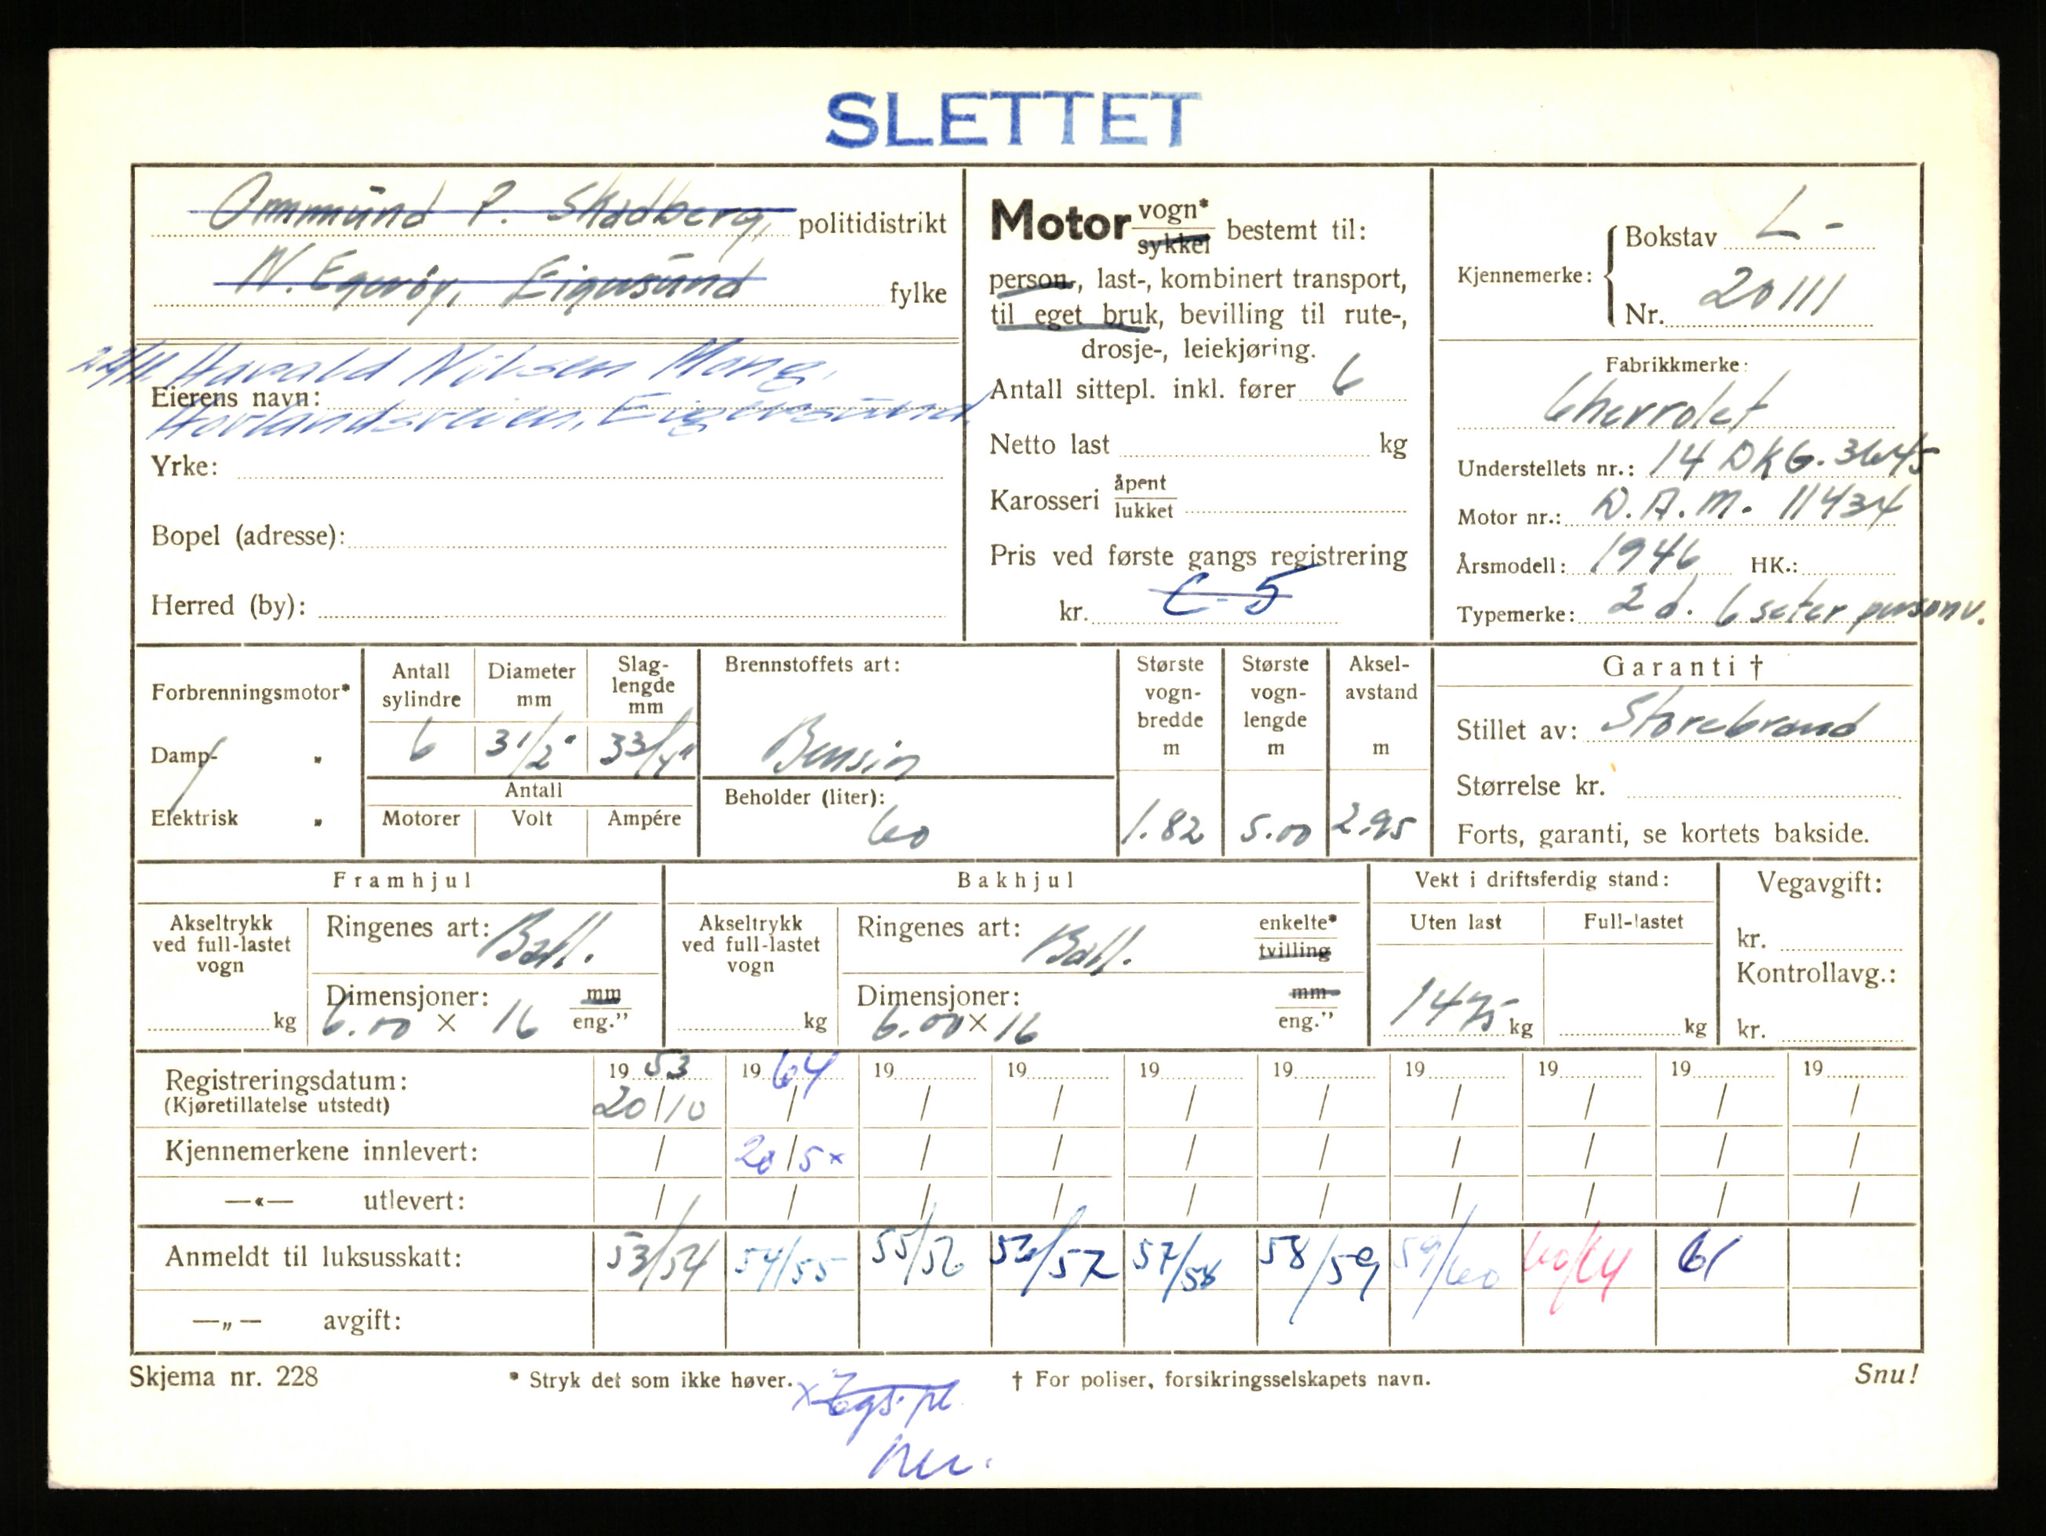 SLETTET
Ommund P. Skadberg, politidistrikt
N. Egerøy, Eigersund fylke
22/11. Harald Nilsen Mong,
Eierens navn:
Hovlandsveien, Eigersund
Yrke:
Bopel (adresse):
Herred (by):
Motor vogn* sykkel bestemt til:
person-, last-, kombinert transport,
til eget bruk, bevilling til rute-,
drosje-, leiekjøring.
Antall sittepl. inkl. fører 6
Netto last kg
Karosseri åpent lukket
Pris ved første gangs registrering
kr. C-5
Kjennemerke: Bokstav L-
Nr. 20111
Fabrikkmerke:
Chevrolet
Understellets nr.: 14 DKG. 3645
Motor nr.: D.A.M. 11434
Årsmodell: 1946 HK.:
Typemerke: 2 d. 6 seter personv.
Forbrenningsmotor*
Damp- "
Elektrisk "
Antall sylindre
Diameter mm
Slag-lengde mm
6 3 1/2" 3 3/4"
Antall
Motorer Volt Ampére
Brennstoffets art:
Bensin
Beholder (liter):
60
Største vogn-bredde m
1.82
Største vogn-lengde m
5.00
Aksel-avstand m
2.95
Garanti †
Stillet av: Storebrand
Størrelse kr.
Forts, garanti, se kortets bakside.
Framhjul
Akseltrykk ved full-lastet vogn
kg
Ringenes art: Ball.
Dimensjoner: mm
6.00 × 16 eng."
Bakhjul
Akseltrykk ved full-lastet vogn
kg
Ringenes art: Ball. enkelte* tvilling
Dimensjoner: mm
6.00 × 16 eng."
Vekt i driftsferdig stand:
Uten last Full-lastet
1475 kg kg
Vegavgift:
kr.
Kontrollavg.:
kr.
Registreringsdatum: 19 53 19 64 19 19 19 19 19 19 19 19
(Kjøretillatelse utstedt) 20/10 / / / / / / / / /
Kjennemerkene innlevert: / 20/5 × / / / / / / / /
—«— utlevert: / / / / / / / / / /
Anmeldt til luksusskatt: 53/54 54/55 55/56 56/57 57/58 58/59 59/60 60/64 61
—„— avgift:
Skjema nr. 228 * Stryk det som ikke høver. † For poliser, forsikringsselskapets navn. Snu!